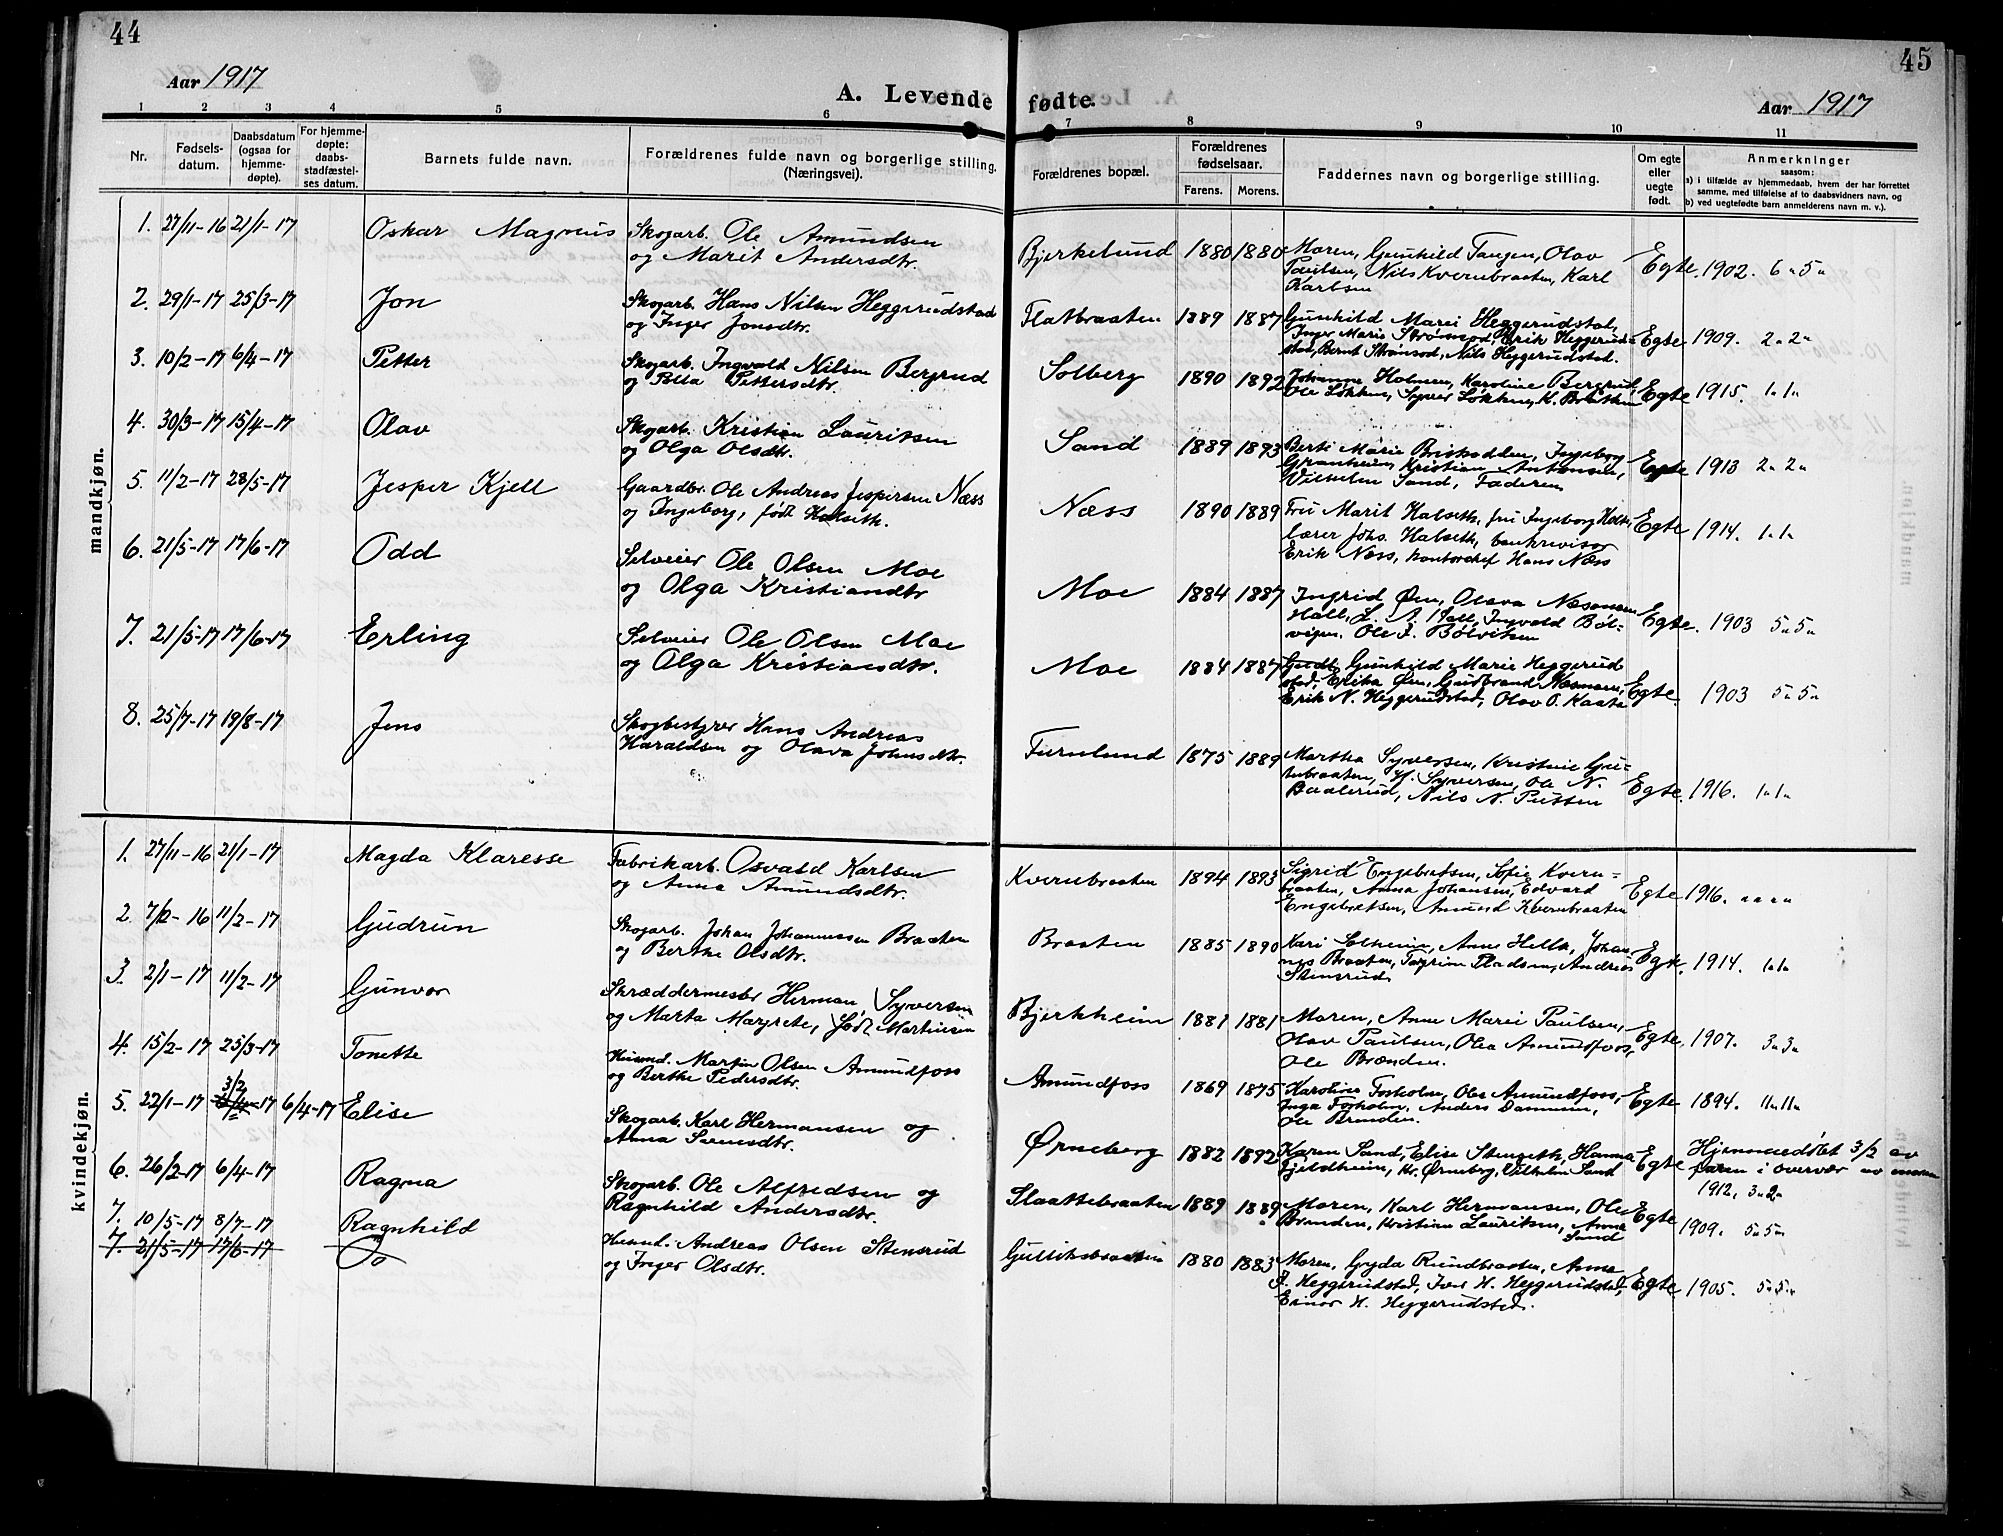 44
Aar 1917
A. Levende
1 2 3 4 5 6
Nr.
Fødsels-
datum.
Daabsdatum
(ogsaa for
hjemme-
døpte).
For hjemme-
døpte:
daabs-
stadfæstel-
ses datum.
Barnets fulde navn.
Forældrenes fulde navn og borgerlige stilling.
(Næringsvei).
mandkjøn.
1. 27/11-16 21/1-17 Oskar Magnus Skogarb. Ole Amundsen
og Marit Andersdtr.
2. 29/1-17 25/3-17 Jon Skogarb. Hans Nilsen Heggerudstad
og Inger Jonsdtr.
3. 10/2-17 6/4-17 Petter Skogarb. Ingvald Nilsen Bergrud
og Pella Pettersdtr.
4. 30/3-17 15/4-17 Olav Skogarb. Kristian Lauritsen
og Olga Olsdtr.
5. 11/2-17 28/5-17 Jesper Kjell Gaardbr. Ole Andreas Jespersen Næss
og Ingeborg, født Halseth.
6. 21/5-17 17/6-17 Odd Selveier Ole Olsen Moe
og Olga Kristiandtr
7. 21/5-17 17/6-17 Erling Selveier Ole Olsen Moe
og Olga Kristiansdtr.
8. 25/7-17 19/8-17 Jens Skogbestyrer Hans Andreas
Haraldsen og Olava Johnsdtr.
kvindekjøn.
1. 27/11-16 21/1-17 Magda Klaresse Fabrikarb. Osvald Karlsen
og Anna Amundsdtr.
2. 7/12-16 11/2-17 Gudrun Skogarb. Johan Johannessen Braaten
og Berthe Olsdtr.
3. 2/1-17 11/2-17 Gunvor Skræddermester Herman Syversen
og Marta Margrete, født Martinsen
4. 15/2-17 25/3-17 Tonette Husmd. Martin Olsen Amundfoss
og Berthe Pedersdtr.
3/2
5. 22/1-17 6/4-17 6/4-17 Elise Skogarb. Karl Hermansen og
Anna Sørensdtr.
6. 26/2-17 6/4-17 Ragna Skogarb. Ole Alfredsen og
Ragnhild Andersdtr.
7. 10/5-17 8/7-17 Ragnhild Husmd. Andreas Olsen Stensrud
7. 21/5-17 17/6-17 og Inger Olsdtr.
45
fødte.
Aar 1917
7 8 9 10 11
Forældrenes bopæl.
Forældrenes
fødselsaar.
Farens. Morens.
Faddernes navn og borgerlige stilling.
Om egte
eller
uegte
født.
Anmerkninger
saasom:
a) i tilfælde av hjemmedaab, hvem der har forrettet
samme, med tilføielse af to daabsvidners navn, og
b) ved uegtefødte barn anmelderens navn m. v.).
Bjerkelund 1880 1880 Moren, Gunhild Tangen, Olav
Paulsen, Nils Kvernbraaten, Karl
Karlsen Egte. 1902. 6 5
Flatbraaten 1889 1887 Gunhild Marie Heggerudstad,
Inger Marie Strømsod, Erik Heggerud-
stad, Bernt Strømsod, Nils Heggerudstad. Egte 1909. 2 2
Solberg 1890 1892 Johanne Holmen, Karoline Bergrud,
Ole Løkken, Syver Løkken, K. Braaten Egte 1915. 1 1
Sand 1889 1893 Berte Marie Briskodden, Ingeborg
Granheim, Kristian Antonsen,
Vilhelm Sand, Faderen Egte 1913 2 2
Næss 1890 1889 Fru Marit Halseth, fru Ingeborg Holt,
lærer Johs. Halseth, bankrevisor
Erik Næss, kontorchef Hans Næss Egte 1914. 1 1
Moe 1884 1887 Ingrid Øen, Olava Næsmoen
Hall, L. A. Hall, Ingvald Bøl-
vigen, Ole J. Bølviken Egte. 1903 5 5
Moe 1884 1887 Gudb. Gunhild Marie Heggerud
stad, Erika Øen, Gudbrand Næsmoen,
Erik N. Heggerudstad, Olav O. Kaata Egte. 1903 5 5
Furulund 1875 1889 Martha Syversen, Kristine Gu-
H. Syversen, Ole N.
Baalerud, Nils N. Putten Egte. 1916. 1 1
Kvernbraaten 1894 1893 Sigrid Engebretsen, Sofie Kvern-
braaten, Anna Johansen, Edvard
Engebretsen, Amund Kvernbraaten Egte 1916.
Braaten 1885 1890 Kari Solheim, Anne Hella, Johan
nes Braaten, Torgrim Pladsen, Andreas
Stensrud Egte. 1914. 1 1
Bjerkheim 1881 1881 Moren, Anne Marie Paulsen,
Olav Paulsen, Olea Amundfoss,
Ole Brænden. Egte. 1907. 3 3
Amundfoss 1869 1875 Karoline Fosholm, Olea Amundfoss,
Inga Fosholm, Anders Dammen,
Ole Brænden. Egte 1894. 11 11
Ørneberg 1882 1892 Karen Sand, Elise Stenseth, Hanna
Gjeldheim, Kr. Ørneberg, Vilhelm Sand Egte Hjemmedøbt 3/2 av
faren i overvær av moren
1912, 3 2
Slaattebraaten 1889 1889 Moren, Karl Hermansen, Ole
Brænden, Kristian Lauritsen, Anna
Sand Egte 1909. 5 5
Gulliksbraaten 1880 1883 Moren, Gyda Rundbraaten, Anna
J. Heggerudstad, Iver H. Heggerudstad,
Einar H. Heggerudstad. Egte 1905. 5 5